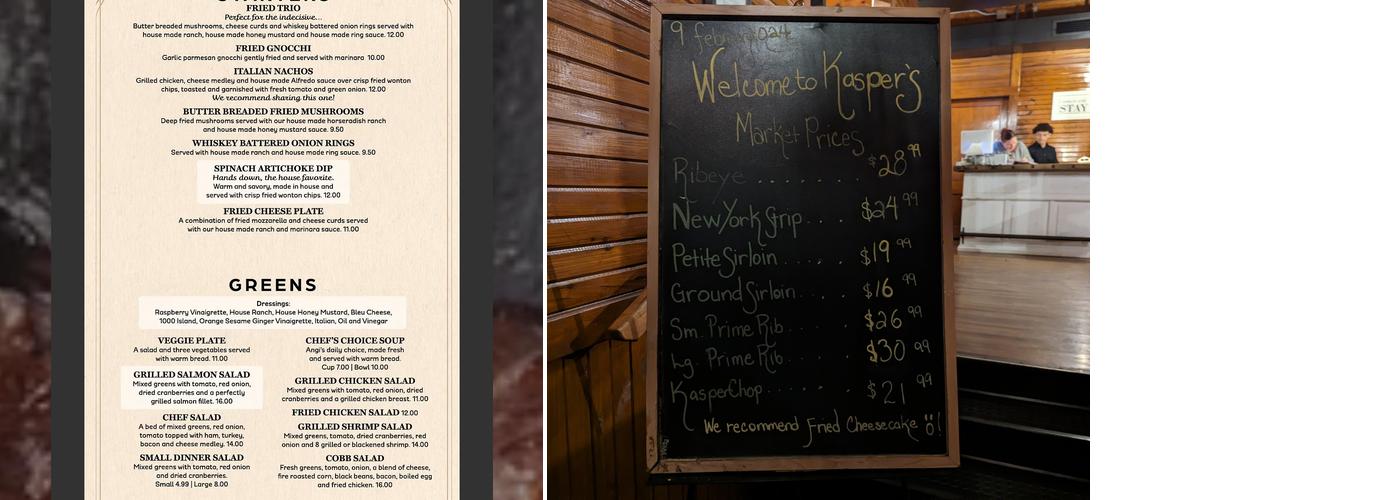 FRIED TRIO
Perfect for the indecisive...
Butter breaded mushrooms, cheese curds and whiskey battered onion rings served with
house made ranch, house made honey mustard and house made ring sauce. 12.00
FRIED GNOCCHI
Garlic parmesan gnocchi gently fried and served with marinara 10.00
ITALIAN NACHOS
Grilled chicken, cheese medley and house made Alfredo sauce over crisp fried wonton
chips, toasted and garnished with fresh tomato and green onion. 12.00
We recommend sharing this one!
BUTTER BREADED FRIED MUSHROOMS
Deep fried mushrooms served with our house made horseradish ranch
and house made honey mustard sauce. 9.50
WHISKEY BATTERED ONION RINGS
Served with house made ranch and house made ring sauce. 9.50
SPINACH ARTICHOKE DIP
Hands down, the house favorite.
Warm and savory, made in house and
served with crisp fried wonton chips. 12.00
FRIED CHEESE PLATE
A combination of fried mozzarella and cheese curds served
with our house made ranch and marinara sauce. 11.00
GREENS
Dressings:
Raspberry Vinaigrette, House Ranch, House Honey Mustard, Bleu Cheese,
1000 Island, Orange Sesame Ginger Vinaigrette, Italian, Oil and Vinegar
VEGGIE PLATE
A salad and three vegetables served
with warm bread. 11.00
GRILLED SALMON SALAD
Mixed greens with tomato, red onion,
dried cranberries and a perfectly
grilled salmon fillet. 16.00
CHEF SALAD
A bed of mixed greens, red onion,
tomato topped with ham, turkey,
bacon and cheese medley. 14.00
SMALL DINNER SALAD
Mixed greens with tomato, red onion
and dried cranberries.
Small 4.99 | Large 8.00
CHEF'S CHOICE SOUP
Angi's daily choice, made fresh
and served with warm bread.
Cup 7.00 | Bowl 10.00
GRILLED CHICKEN SALAD
Mixed greens with tomato, red onion, dried
cranberries and a grilled chicken breast. 11.00
FRIED CHICKEN SALAD 12.00
GRILLED SHRIMP SALAD
Mixed greens, tomato, dried cranberries, red
onion and 8 grilled or blackened shrimp. 14.00
COBB SALAD
Fresh greens, tomato, onion, a blend of cheese,
fire roasted corn, black beans, bacon, boiled egg
and fried chicken. 16.00
9 february 2024
Welcome to Kasper's
Market Prices
Ribeye........ $28 99
New York Strip.... $24 99
Petite Sirloin..... $19 99
Ground Sirloin.... $16 99
Sm. Prime Rib..... $26 99
Lg. Prime Rib..... $30 99
Kasper Chop...... $21 99
We recommend Fried Cheesecake !
STAY